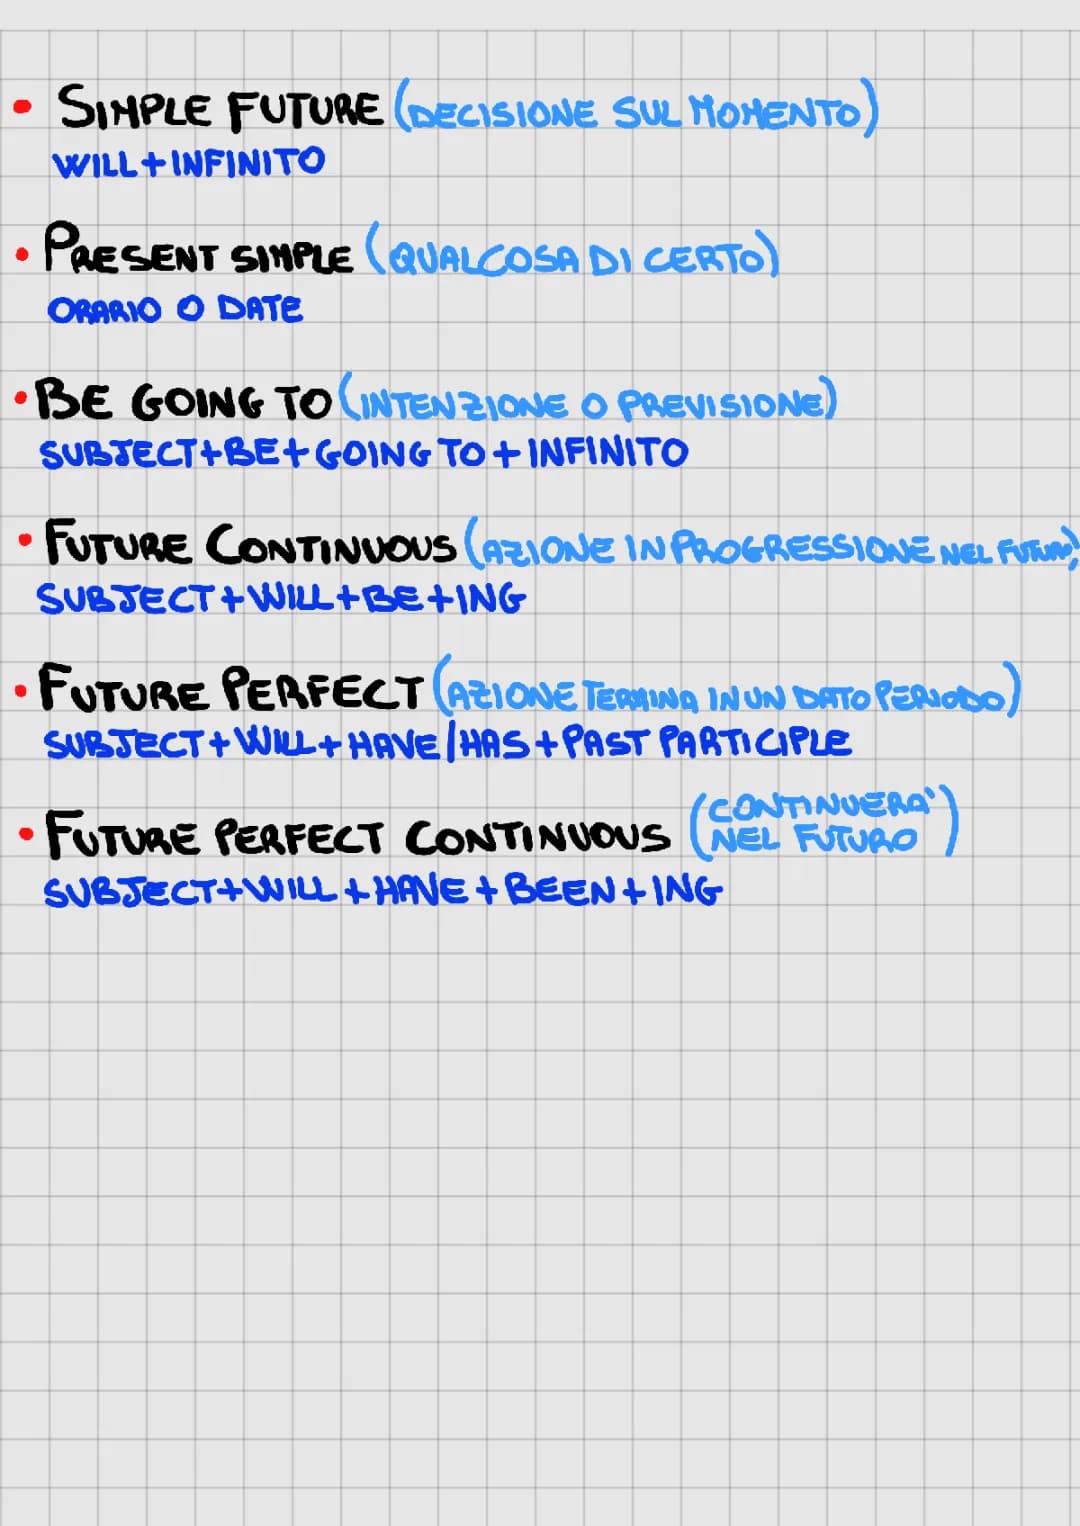 • SIMPLE FUTURE (DECISIONE SUL MOMENTO)
WILL+INFINITO
• PRESENT SIMPLE (QUALCOSA DI CERTO)
ORARIO O DATE
• BE GOING TO (INTENZIONE O PREVISIONE)
SUBJECT+BE+GOING TO+INFINITO
• FUTURE CONTINUOUS (AZIONE IN PROGRESSIONE NEL FUTURO)
SUBJECT+WILL+BE+ING
• FUTURE PERFECT (AZIONE TERMINA IN UN DATO PERIODO)
SUBJECT+WILL+HAVE/HAS+PAST PARTICIPLE
• FUTURE PERFECT CONTINUOUS (CONTINUERA' NEL FUTURO)
SUBJECT+WILL+HAVE+BEEN+ING